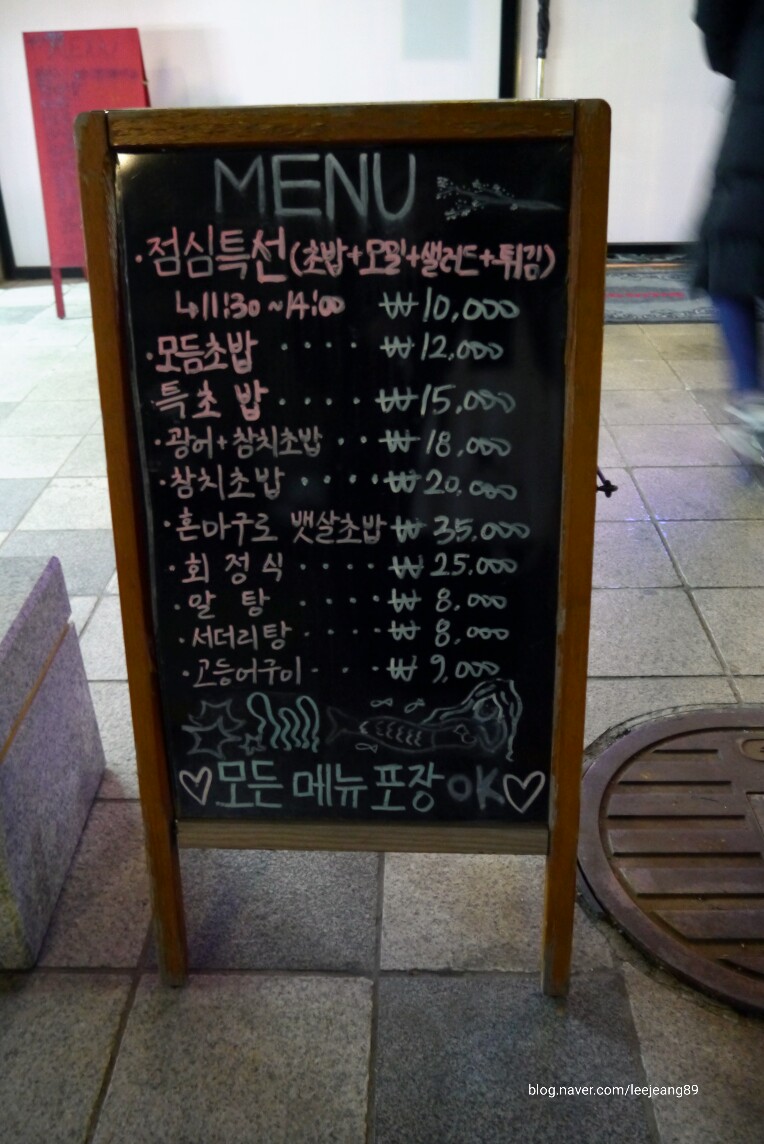 MENU
·점심특선(초밥+모밀+샐러드+튀김)
↳11:30~14:00 ₩10,000
·모듬초밥 ···· ₩12,000
·특초밥 ···· ₩15,000
·광어+참치초밥 ·· ₩18,000
·참치초밥 ···· ₩20,000
·혼마구로 뱃살초밥 ₩35,000
·회정식 ···· ₩25,000
·알탕 ···· ₩8,000
·서더리탕 ···· ₩8,000
·고등어구이 ···· ₩9,000
♡모든 메뉴 포장 OK♡
blog.naver.com/leejeang89